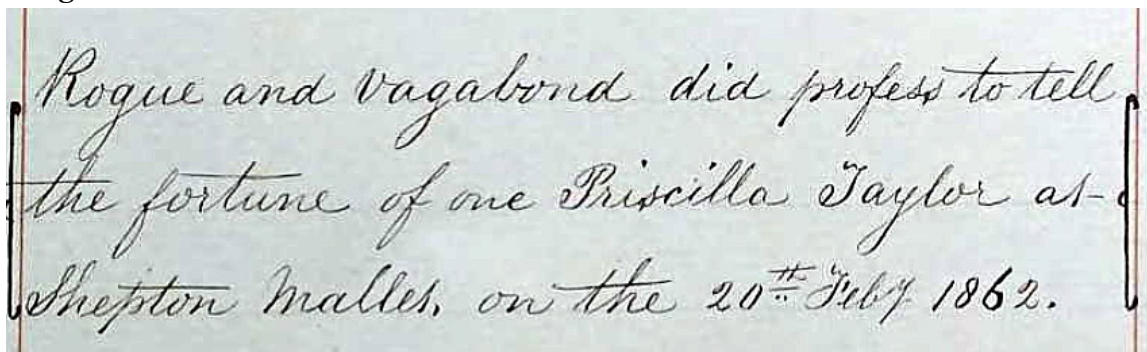 Rogue and vagabond did profess to tell
the fortune of one Priscilla Taylor at
Shepton Mallet, on the 20th Feby 1862.